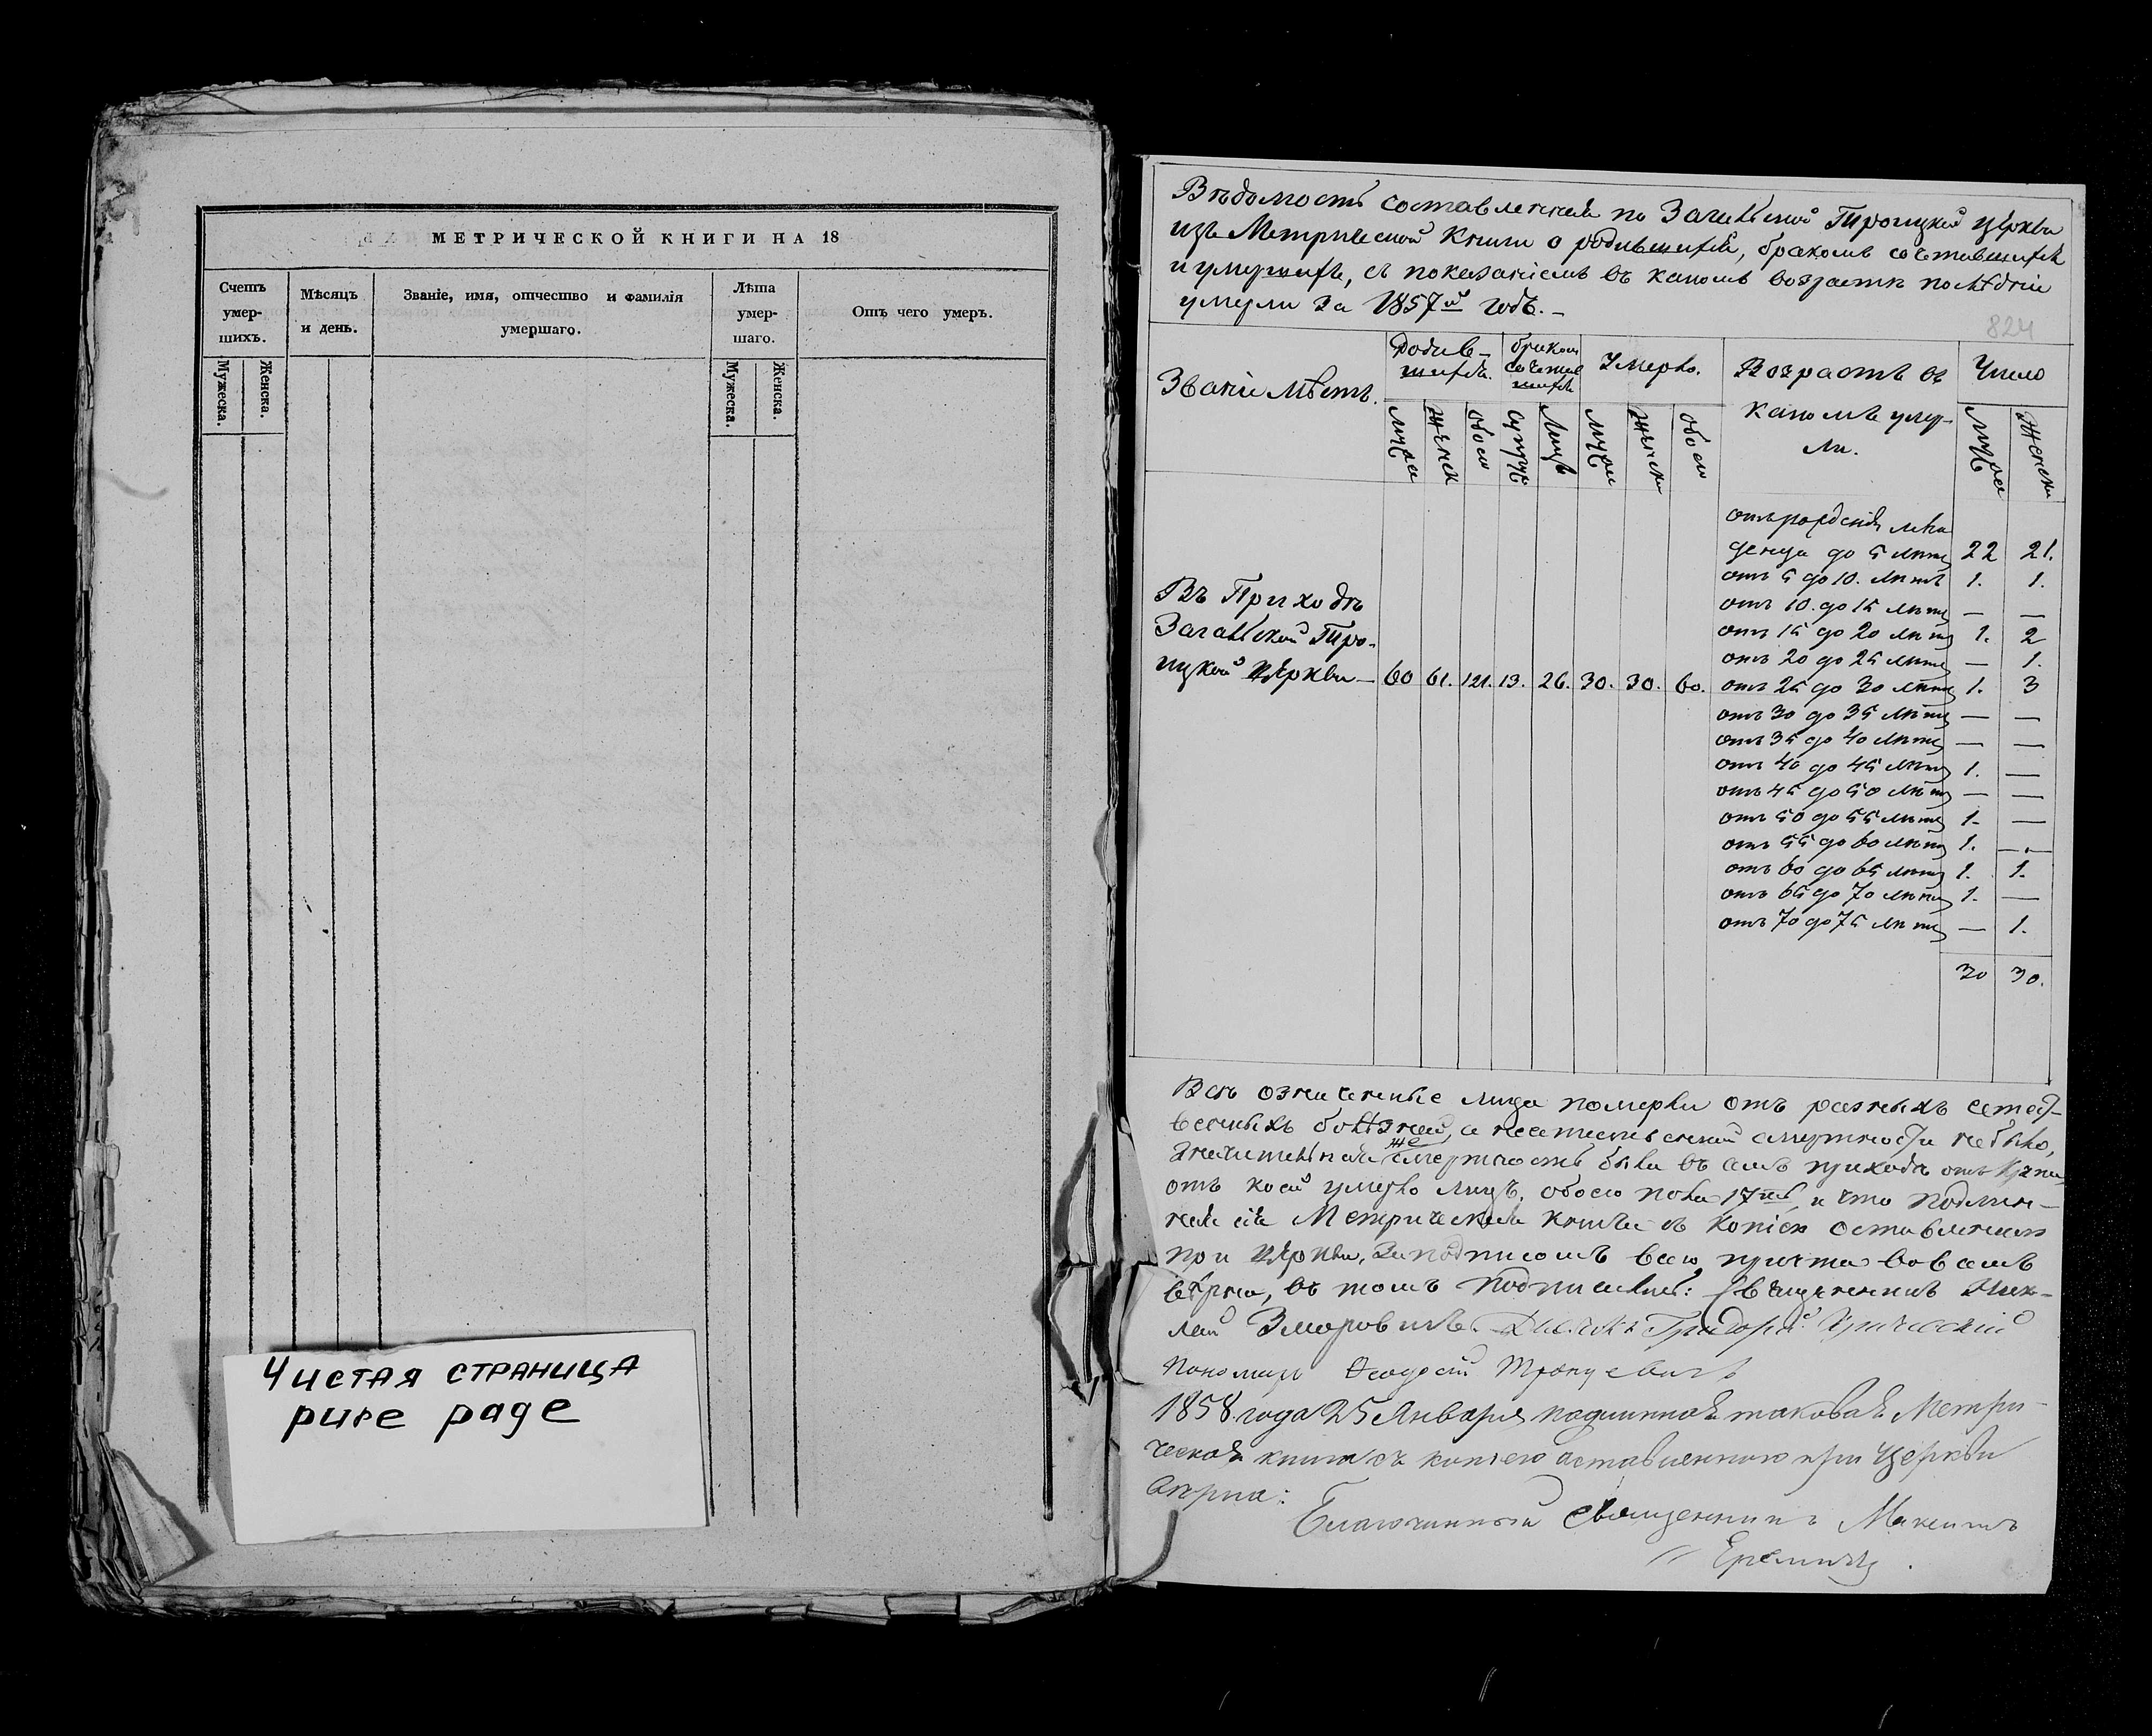 МЕТРИЧЕСКОЙ КНИГИ НА 18
Счетъ умер-шихъ.
Мѣсяцъ и день.
Званіе, имя, отчество и фамилія умершаго.
Лѣта умер-шаго.
Отъ чего умеръ.
Мужеска.
Женска.
Мужеска.
Женска.
Чистая страница
pure page
Вѣдомость составленная по Троицкой Церкви
изъ Метрической Книги о родившихся, бракомъ сочетавшихся
и умершихъ, съ показаніемъ въ какомъ возрастѣ послѣдніе
умерли за 1857й годъ. –
824
Званіе мѣстъ.
Родив-шихся.
бракомъ сочетав шихся
Умерло.
Возрастъ въ какомъ умер-ли.
Число
Мужес
Женск
Обоего
Супруж
Лицъ
Мужес
Женски
Обоего
Мужес
Женски
отъ рожденія мла
денца до 5 лѣтъ 22 21.
отъ 5 до 10. лѣтъ 1. 1.
отъ 10. до 15 лѣтъ — —
отъ 15 до 20 лѣтъ 1. 2
отъ 20 до 25 лѣтъ — 1.
отъ 25 до 30 лѣтъ 1. 3
отъ 30 до 35 лѣтъ — —
отъ 35 до 40 лѣтъ — —
отъ 40 до 45 лѣтъ 1. —
отъ 45 до 50 лѣтъ — —
отъ 50 до 55 лѣтъ 1. —
отъ 55 до 60 лѣтъ 1. —
отъ 60 до 65 лѣтъ 1. 1.
отъ 65 до 70 лѣтъ 1. —
отъ 70 до 75 лѣтъ — 1.
30 30.
Въ Приходѣ
Тро-
ицкой Церкви — 60 61. 121. 13. 26. 30. 30. 60.
Всѣ означенные лица померли отъ разныхъ естест-
венныхъ болѣзней, а неестественной смертности не было,
значительная же смертность была въ семъ приходѣ отъ
отъ коей умерло лицъ, обоего пола 17ть, и что подлин-
ная сія Метрическая книга съ копіею оставленною
при Церкви, за подписомъ всего причта во всемъ
вѣрна, въ томъ подписались: Священникъ Нико-
лай Дьячекъ Григорій
Пономарь Ѳеодосій
1858 года 25 Января подлинная таковая Метри-
ческая книга съ копіею оставленною при Церкви
вѣрна:
Благочинный Священникъ Максимъ
Еремичъ.